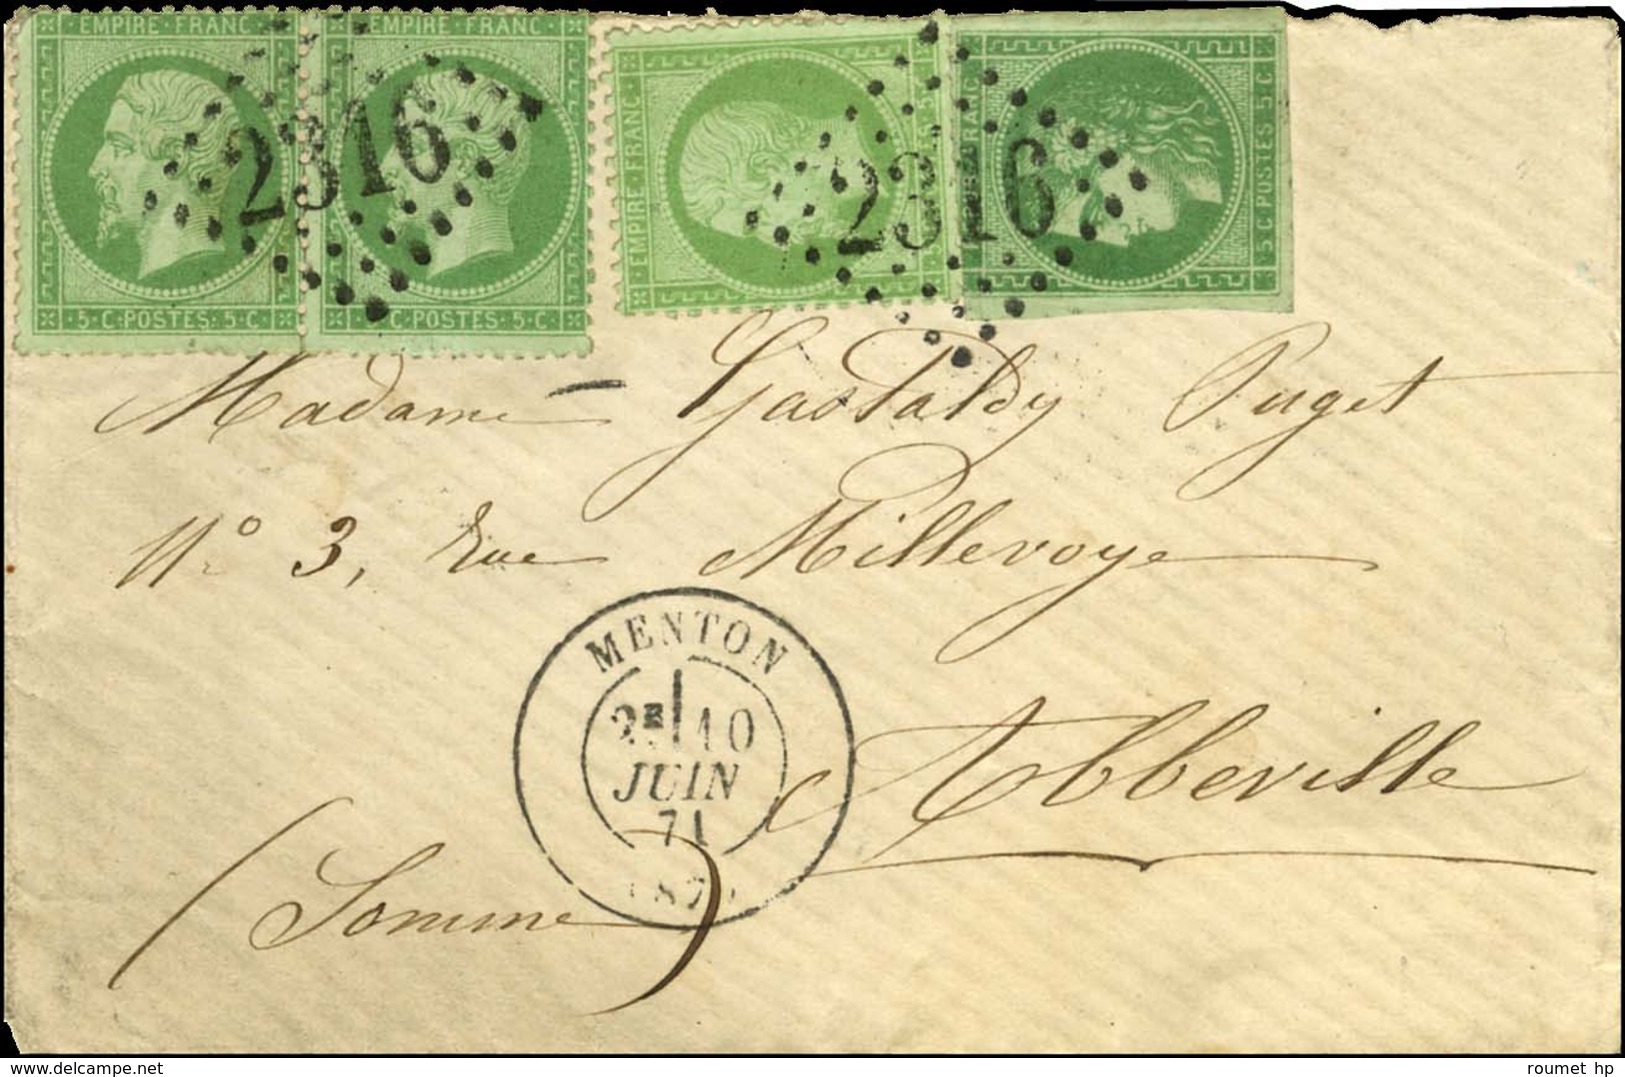 EMPIRE FRANC EMPIRE FRANC
EMPIRE FRANC
5 C POSTES 5 C
2316 2316
5 C POSTES 5 C C POSTES 5 C
Madame Gastaldy Puget
N° 3, Rue Millevoye
MENTON
2E 10
JUIN
71
(87)
Abbeville
(Somme)
roumet hp